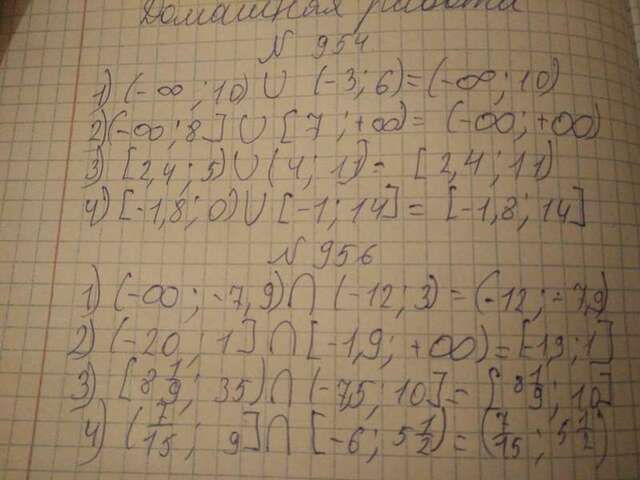 Домашняя работа
N 954
1) (-∞; 10) ∪ (-3; 6) = (-∞; 10)
2) (-∞; 8] ∪ [7; +∞) = (-∞; +∞)
3) [2,4; 5) ∪ (4; 11) = [2,4; 11)
4) [-1,8; 0) ∪ [-1; 14] = [-1,8; 14]
N 956
1) (-∞; -7,9) ∩ (-12; 3) = (-12; -7,9)
2) (-20; 1] ∩ [-1,9; +∞) = [-1,9; 1]
3) [8 1/9; 35) ∩ (-7,5; 10] = [8 1/9; 10]
4) (7/15; 9] ∩ [-6; 5 1/2) = (7/15; 5 1/2)